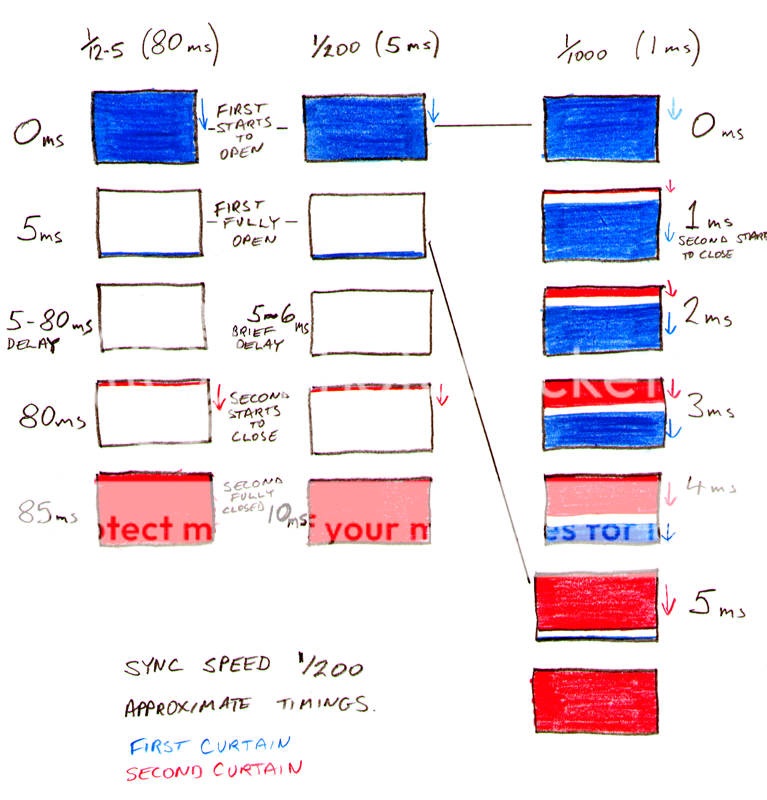 1/12.5 (80ms)
1/200 (5ms)
1/1000 (1ms)
0ms
FIRST
STARTS
TO
OPEN
0ms
5ms
FIRST
FULLY
OPEN
1ms
SECOND START
TO CLOSE
5-80ms
DELAY
5-6ms
BRIEF
DELAY
2ms
80ms
SECOND
STARTS
TO
CLOSE
3ms
85ms
SECOND
FULLY
CLOSED
10ms
4ms
otect m
f your m
es for
5ms
SYNC SPEED 1/200
APPROXIMATE TIMINGS.
FIRST CURTAIN
SECOND CURTAIN